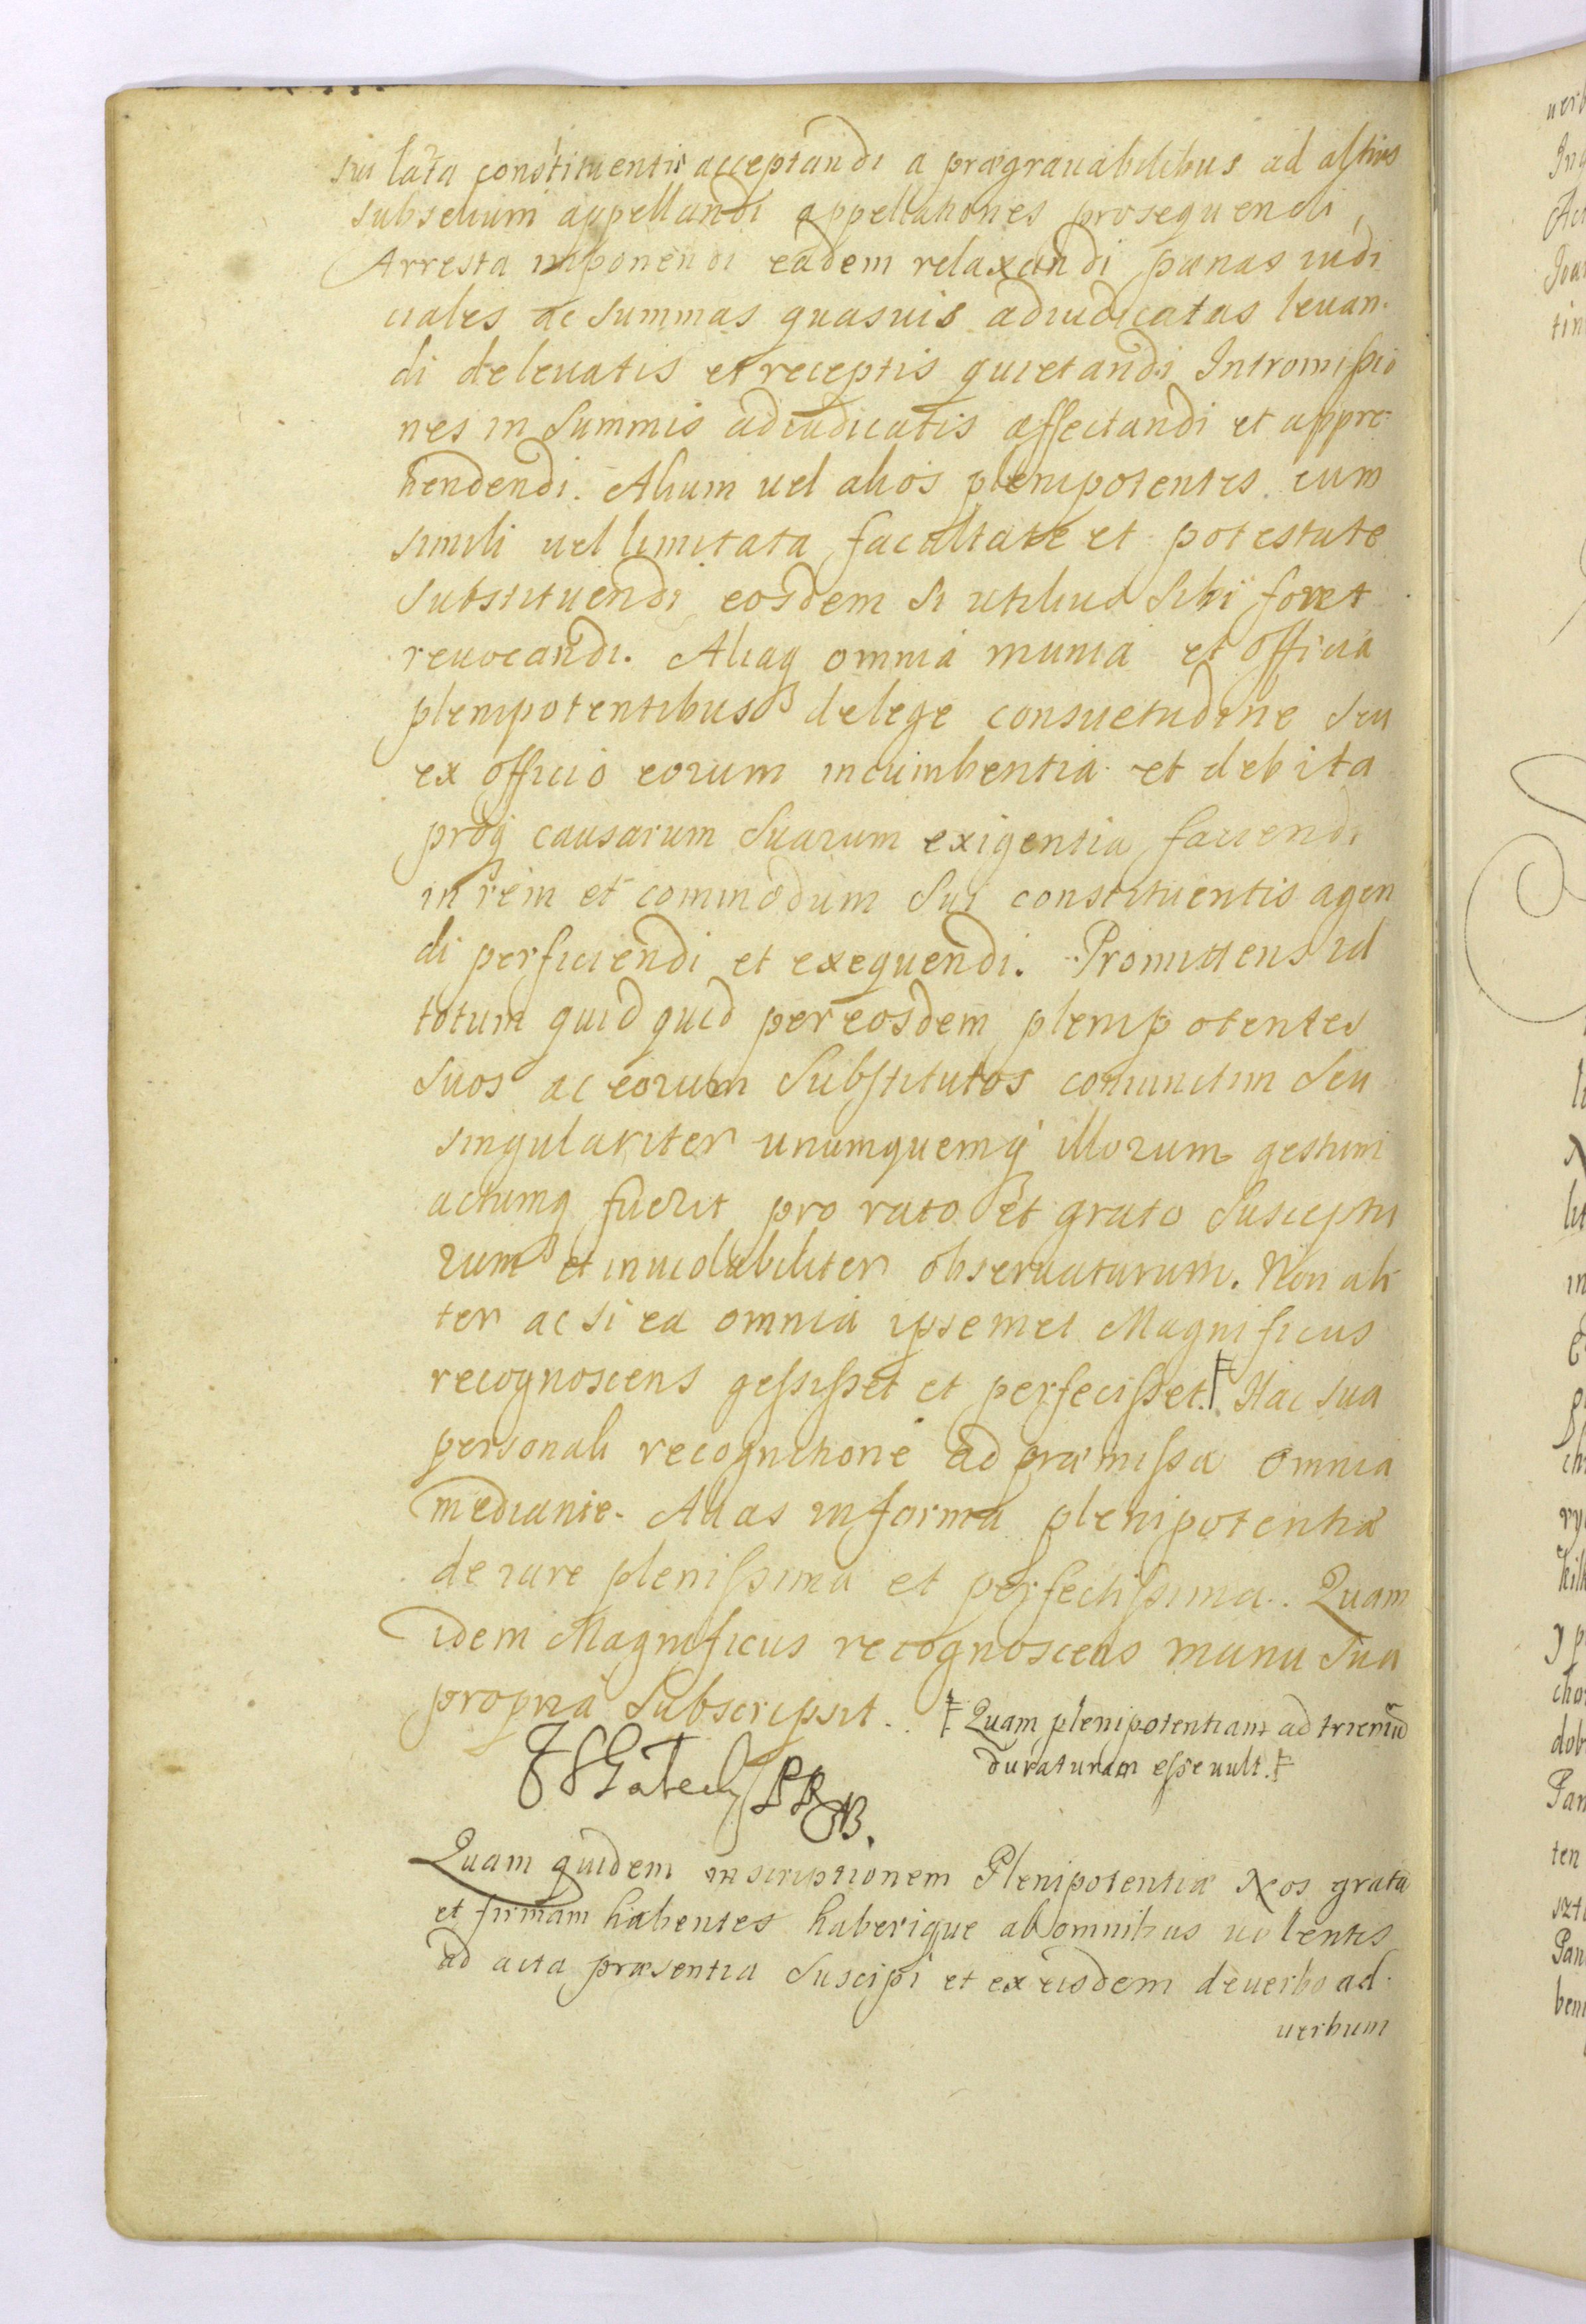 sui lata constituentis acceptandi a prægrauabilibus ad altius
subselium appellandi appellationes prosequendi,
Arresta imponendi eadem relaxandi pænas iudi
ciales ac summas quasuis adiudicatas leuan-
di de leuatis et receptis quietandi Intromissio
nes in summis adiudicatis affectandi et appre-
hendendi. Alium uel alios plenipotentes cum
simili uel limitata facultate et potestate
substituendi eosdem si utilius sibi foret
reuocandi. Aliaq omnia munia et officia
plenipotentibus de lege consuetudine seu
ex officio eorum incumbentia et debita
proq causarum suarum exigentia faciendi
in rem et commodum sui constituentis agen
di perficiendi et exequendi. Promittens id
totum quid quid per eosdem plenipotentes
suos ac eorum substitutos coniunctim seu
singulariter unumquemq illorum gestum
actumq fuerit pro rato et grato susceptu
rum et inuiolabiliter obseruaturum. Non ali
ter ac si ea omnia ipsemet Magnificus
recognoscens gessisset et perfecisset. ‡ Hac sua
personali recognitione ad præmissa omnia
mediante. Alias in forma plenipotentiæ
de iure plenissima et perfectissima. Quam
idem Magnificus recognoscens manu sua
propria subscripsit.
‡ Quam plenipotentiam ad trienniũ
duraturam esse uult. ‡
Quam quidem inscriptionem Plenipotentiæ Nos gratã
et firmam habentes haberique ab omnibus uolentes
ad acta præsentia suscipi et ex eisdem de uerbo ad
uerbum